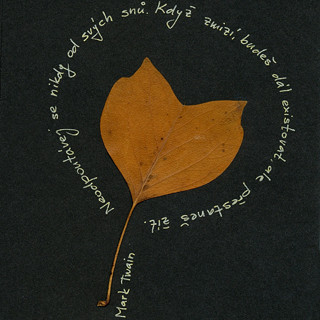 Neodpoutávej se nikdy od svých snů. Když zmizí, budeš dál existovat, ale přestaneš žít.
Mark Twain